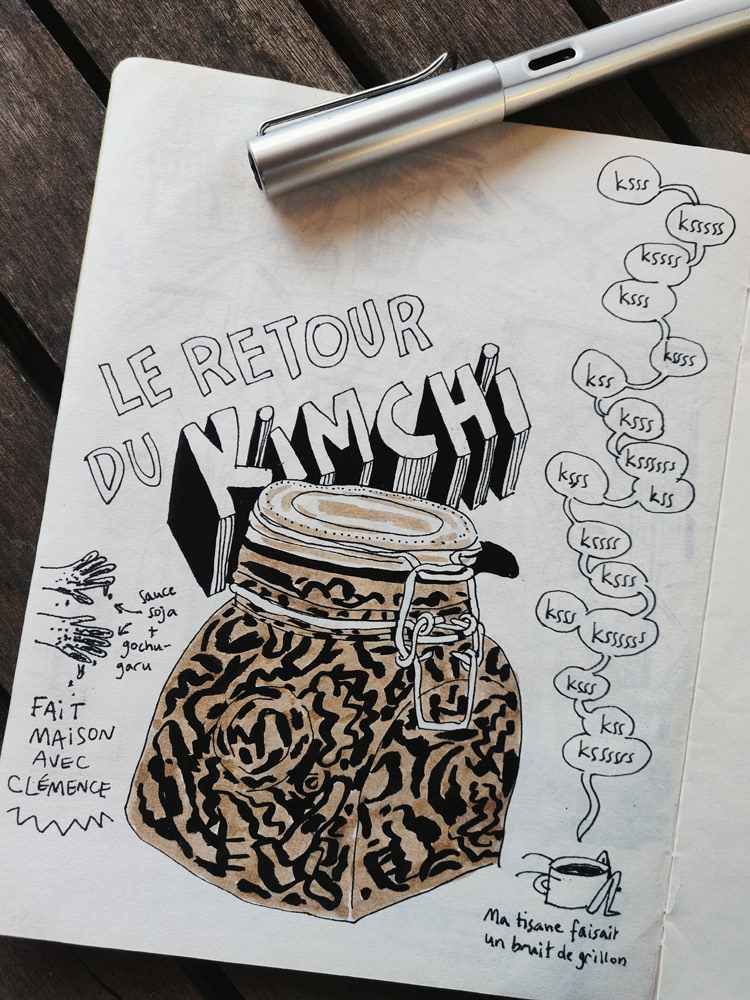 LE RETOUR
DU KiMCHi
sauce
soja
+
gochu-
garu
FAiT
MAiSON
AVEC
CLÉMENCE
ksss
ksssss
kssss
ksss
kssss
kss
ksss
kssssss
kss
ksss
kssss
ksss
ksss
kssssss
ksss
kss
ksssss
Ma tisane faisait
un bruit de grillon